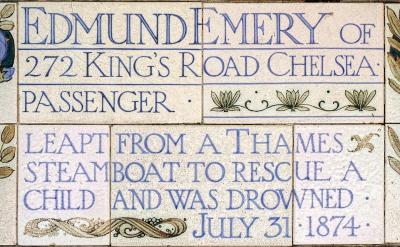 EDMUND EMERY OF
272 KING'S ROAD CHELSEA·
PASSENGER ·
LEAPT FROM A THAMES
STEAMBOAT TO RESCUE A
CHILD AND WAS DROWNED ·
JULY 31 · 1874 ·